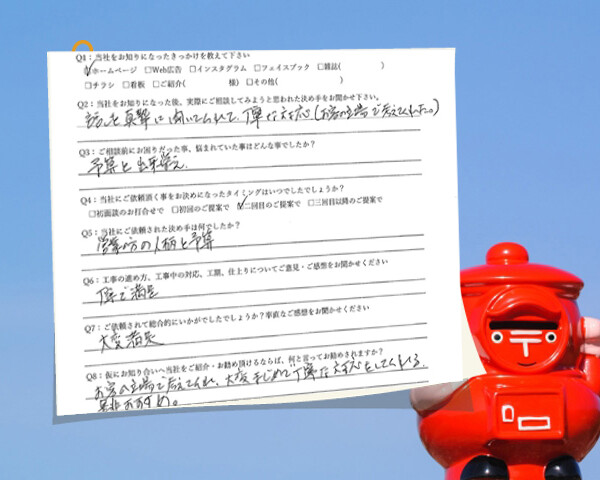 Q1：当社をお知りになったきっかけを教えて下さい
☑ホームページ □Web広告 □インスタグラム □フェイスブック □雑誌( )
□チラシ □看板 □ご紹介( 様) □その他( )
Q2：当社をお知りになった後、実際にご相談してみようと思われた決め手をお聞かせ下さい。
話しを真摯に聞いてくれて、丁寧な対応(お客の立場で考えてくれた。)
Q3：ご相談前にお困りだった事、悩まれていた事はどんな事でしたか？
予算と出来栄え
Q4：当社にご依頼頂く事をお決めになったタイミングはいつでしたでしょうか？
□初面談のお打合せで □初回のご提案で ☑二回目のご提案で □三回目以降のご提案で
Q5：当社にご依頼された決め手は何でしたか？
営業の方の人柄と予算
Q6：工事の進め方、工事中の対応、工期、仕上りについてご意見・ご感想をお聞かせください
満足
Q7：ご依頼されて総合的にいかがでしたでしょうか？率直なご感想をお聞かせください
大変満足
Q8：仮にお知り合いへ当社をご紹介・お勧め頂けるならば、何と言ってお勧めされますか？
お客の立場で考えてくれ、大変まじめで丁寧な対応をしてくれる。
是非おすすめ。
〒